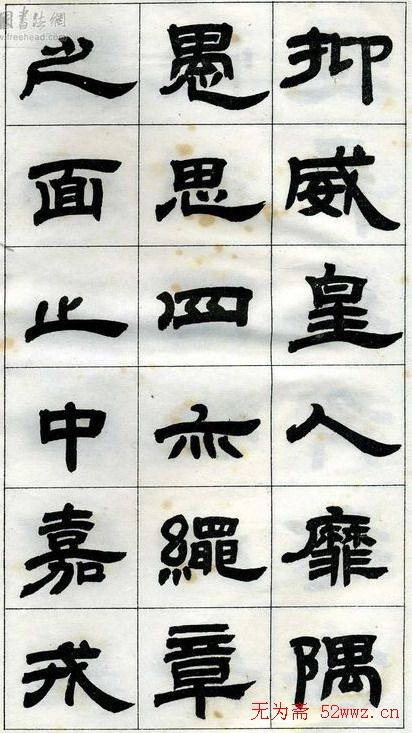 抑威皇人靡隅
愚思四亦繩章
之面止中嘉戎
書法網
www.freehead.com
无为斋 52wwz.cn